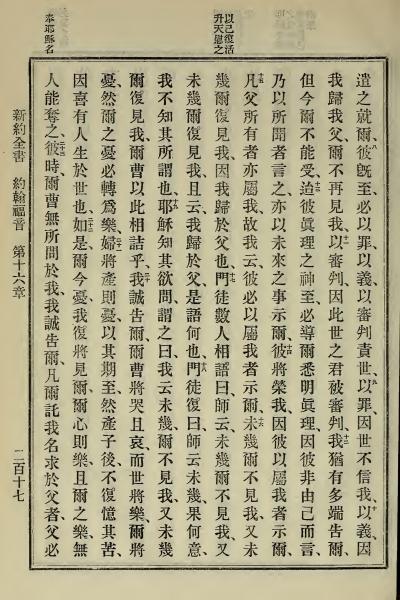 以己復活
升天慰之
奉耶穌名
遣之就爾、八彼旣至、必以罪以義、以審判責世、九以罪、因世不信我、十以義、因
我歸我父、爾不再見我、十一以審判、因此世之君被審判、十二我猶有多端告爾、
但今爾不能受、十三迨彼眞理之神至、必導爾悉明眞理、因彼非由己而言、
乃以所聞者言之、亦以未來之事示爾、十四彼將榮我、因彼以屬我者示爾、
十五凡父所有者亦屬我、故我云、彼必以屬我者示爾、十六未幾爾不見我、又未
幾爾復見我、因我歸於父也、十七門徒數人相語曰、師云、未幾爾不見我、又
未幾爾復見我、且云、我歸於父、是語何也、十八門徒復曰、師云未幾、果何意、
我不知其所謂也、十九耶穌知其欲問、謂之曰、我云、未幾爾不見我、又未幾
爾復見我、爾曹以此相詰乎、二十我誠告爾、爾曹將哭且哀、而世將樂、爾將
憂、然爾之憂、必轉爲樂、二一婦將產則憂、以其期至、然產子後、不復憶其苦、
因喜有人生於世也、二二如是、爾今憂、我復將見爾、爾心則樂、且爾之樂、無
人能奪之、二三彼時、爾曹無所問於我、我誠告爾、凡爾託我名求於父者、父必
新約全書　約翰福音　第十六章　二百十七